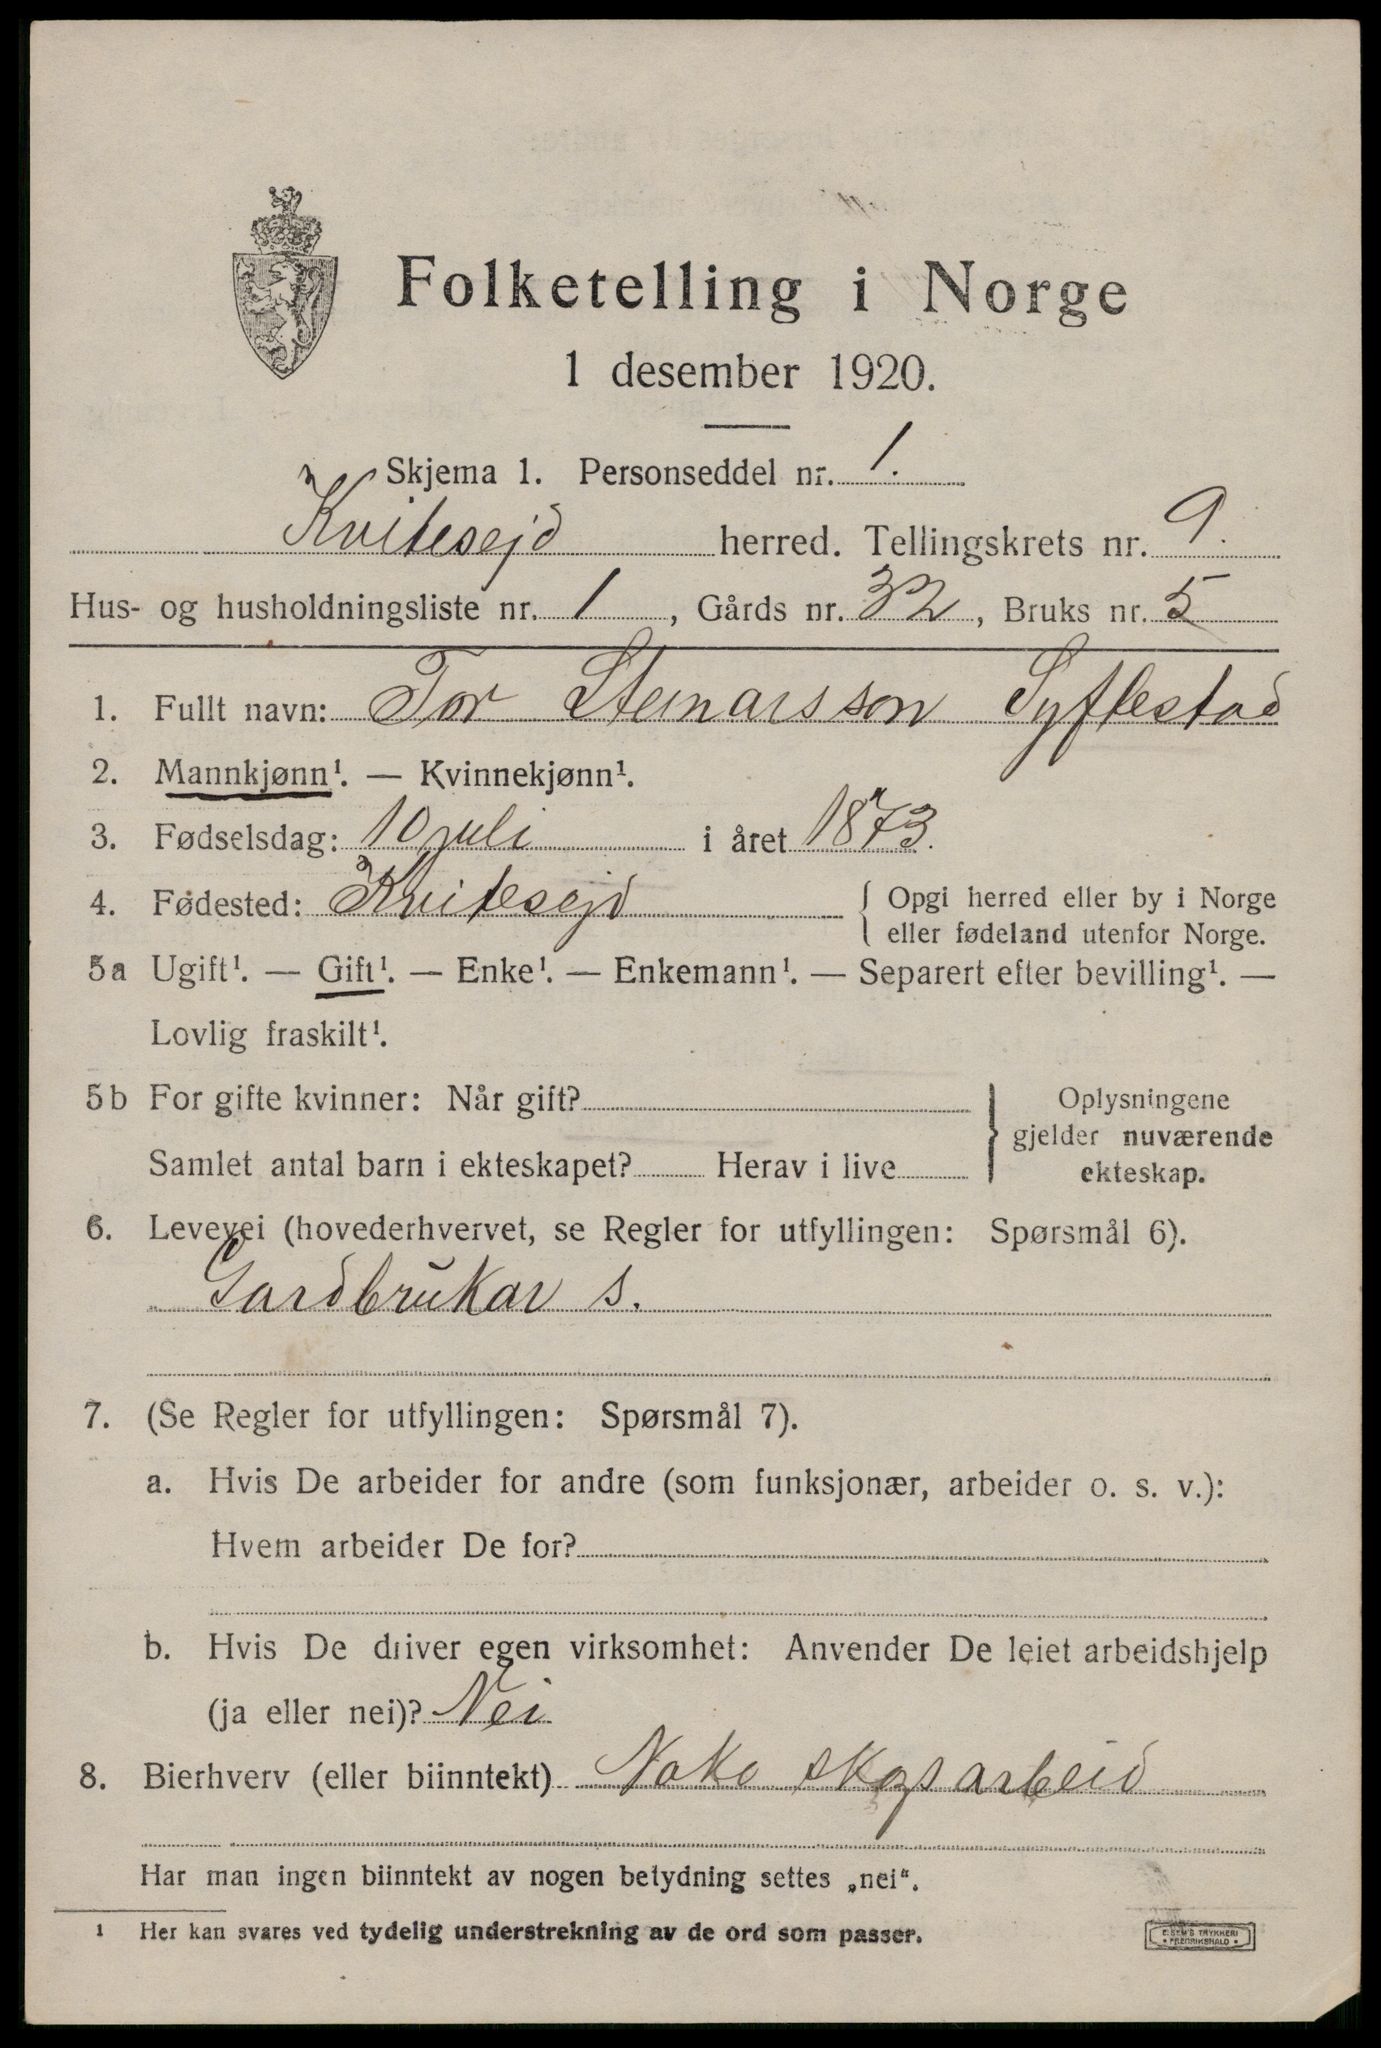 Folketelling i Norge
1 desember 1920.
Skjema 1. Personseddel nr. 1.
Kvitesejd herred. Tellingskrets nr. 9.
Hus- og husholdningsliste nr. 1, Gårds nr. 32, Bruks nr. 5
1. Fullt navn: Tor Steinarsson Syftestad
2. Mannkjønn¹. — Kvinnekjønn¹.
3. Fødselsdag: 10 juli i året 1873.
4. Fødested: Kvitesejd { Opgi herred eller by i Norge
eller fødeland utenfor Norge.
5a Ugift¹. — Gift¹. — Enke¹. — Enkemann¹. — Separert efter bevilling¹. —
Lovlig fraskilt¹.
5b For gifte kvinner: Når gift?
Samlet antal barn i ekteskapet? Herav i live
} Oplysningene
gjelder nuværende
ekteskap.
6. Levevei (hovederhvervet, se Regler for utfyllingen: Spørsmål 6).
Gardbrukar s.
7. (Se Regler for utfyllingen: Spørsmål 7).
a. Hvis De arbeider for andre (som funksjonær, arbeider o. s. v.):
Hvem arbeider De for?
b. Hvis De driver egen virksomhet: Anvender De leiet arbeidshjelp
(ja eller nei)? Nei
8. Bierhverv (eller biinntekt) Noko skogsarbeid
Har man ingen biinntekt av nogen betydning settes „nei“.
1 Her kan svares ved tydelig understrekning av de ord som passer.
E. SEM'S TRYKKERI
• FREDRIKSHALD •